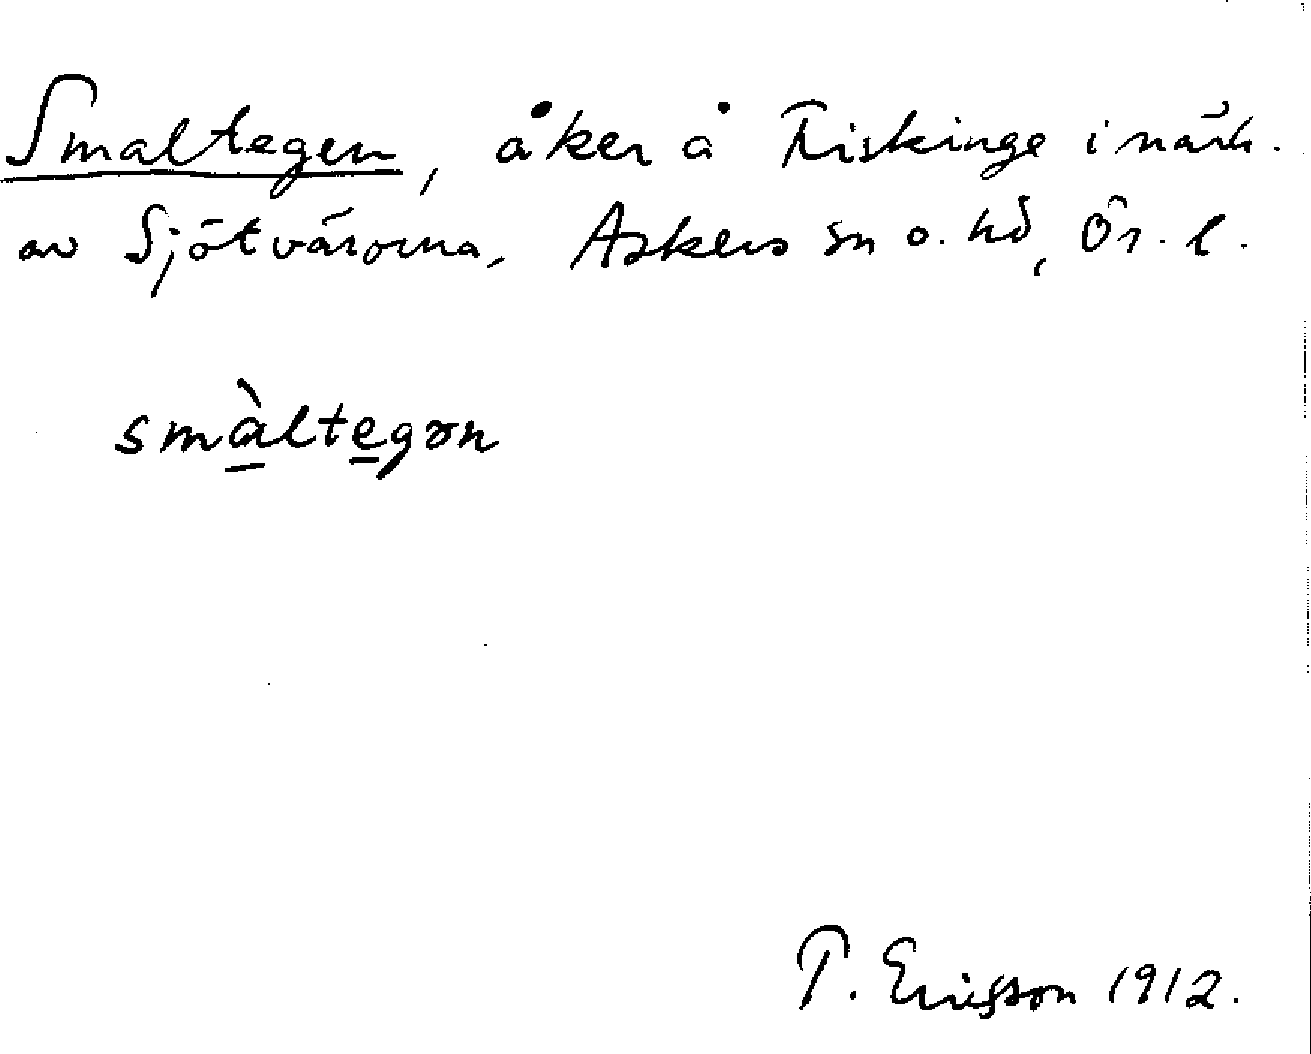 Smaltegen, åker å Fiskinge i närh.
av Sjötvärorna, Askers sn o. hd, Ör. l.
smàltegən
T. Ericsson 1912.